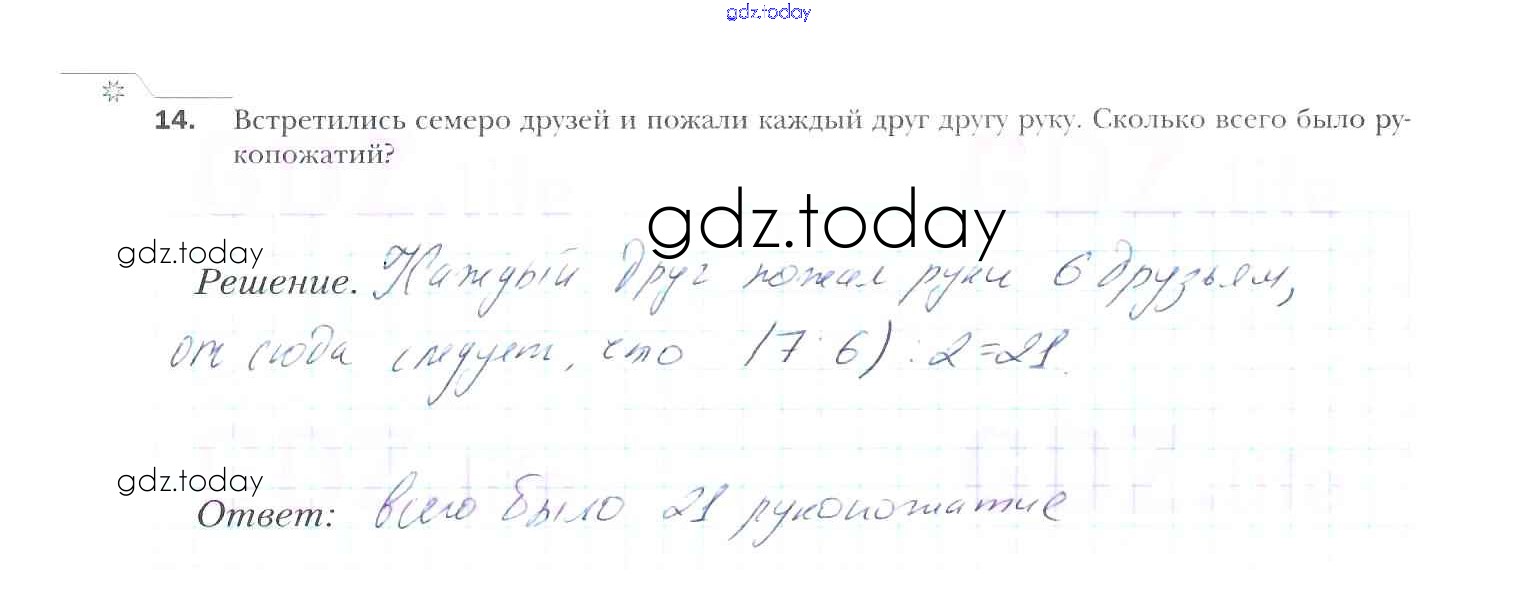 gdz.today
14. Встретились семеро друзей и пожали каждый друг другу руку. Сколько всего было ру-
копожатий?
gdz.today
gdz.today
Решение. Каждый друг пожал руки 6 друзьям,
от сюда следует, что (7·6):2=21.
gdz.today
Ответ: всего было 21 рукопожатие